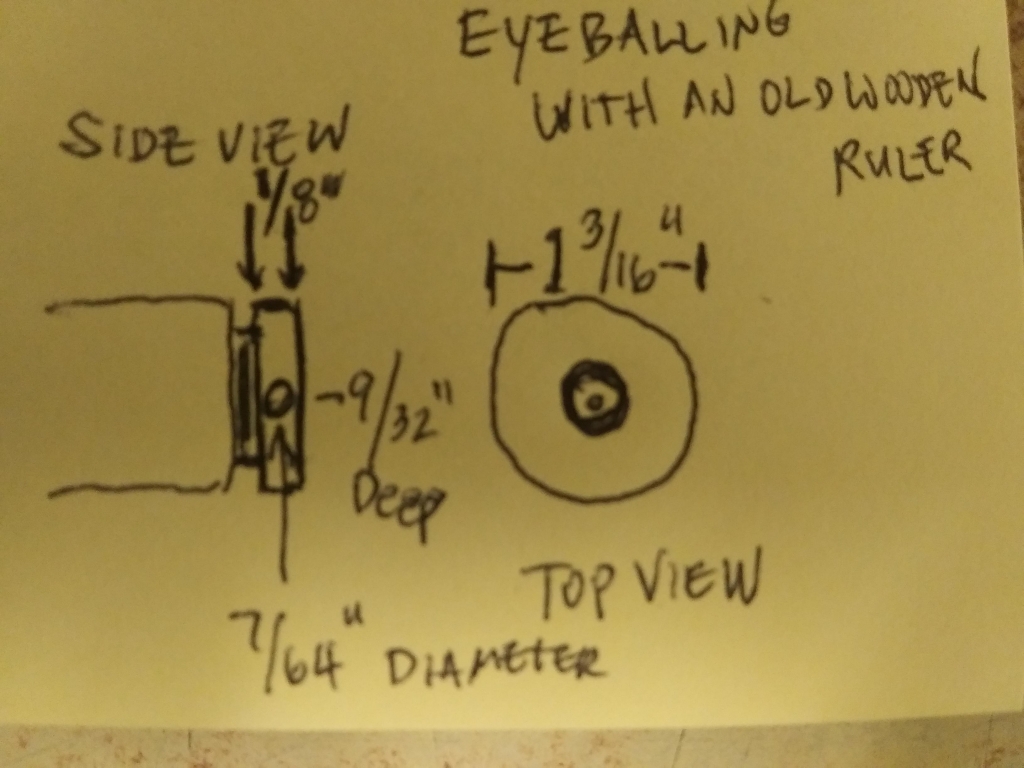 EYEBALLING
WITH AN OLD WOODEN
RULER
SIDE VIEW
1/8"
1 3/16"
9/32"
Deep
TOP VIEW
7/64" DIAMETER